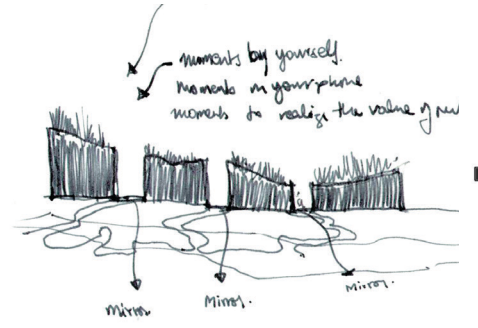 moments by yourself.
moments in your phone
moments to realize the value of
Mirror.
Mirror.
Mirror.